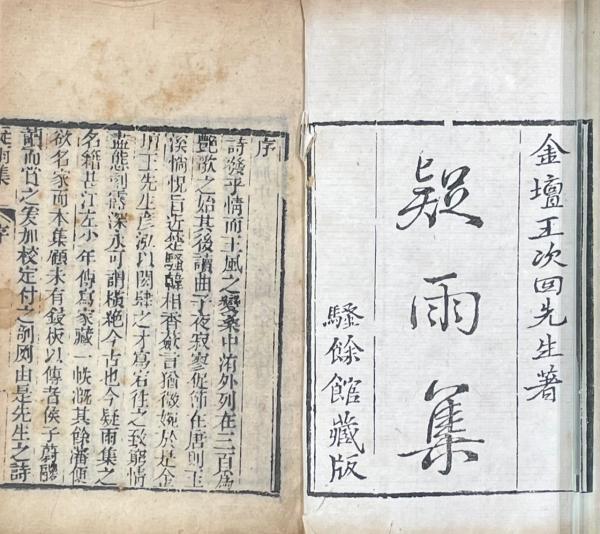 金壇王次回先生著
疑雨集
騷餘館藏版
序
詩發乎情而王風之變桑中洧外列在三百為
艷歌之始其後讀曲子夜寂寥促節在唐則玉
溪惝怳旨近楚騷韓相香奩言猶微婉於是金
壇王先生彥泓以閎肆之才寫宕往之致窮情
盡態刻露深永可謂橫絕今古也今疑雨集之
名籍甚江左少年傳寫家藏一帙溉其餘瀋便
欲名家而本集顧未有鋟板以傳者侯子蔚
而賞之爰加校定付之剞劂由是先生之詩
疑雨集 序